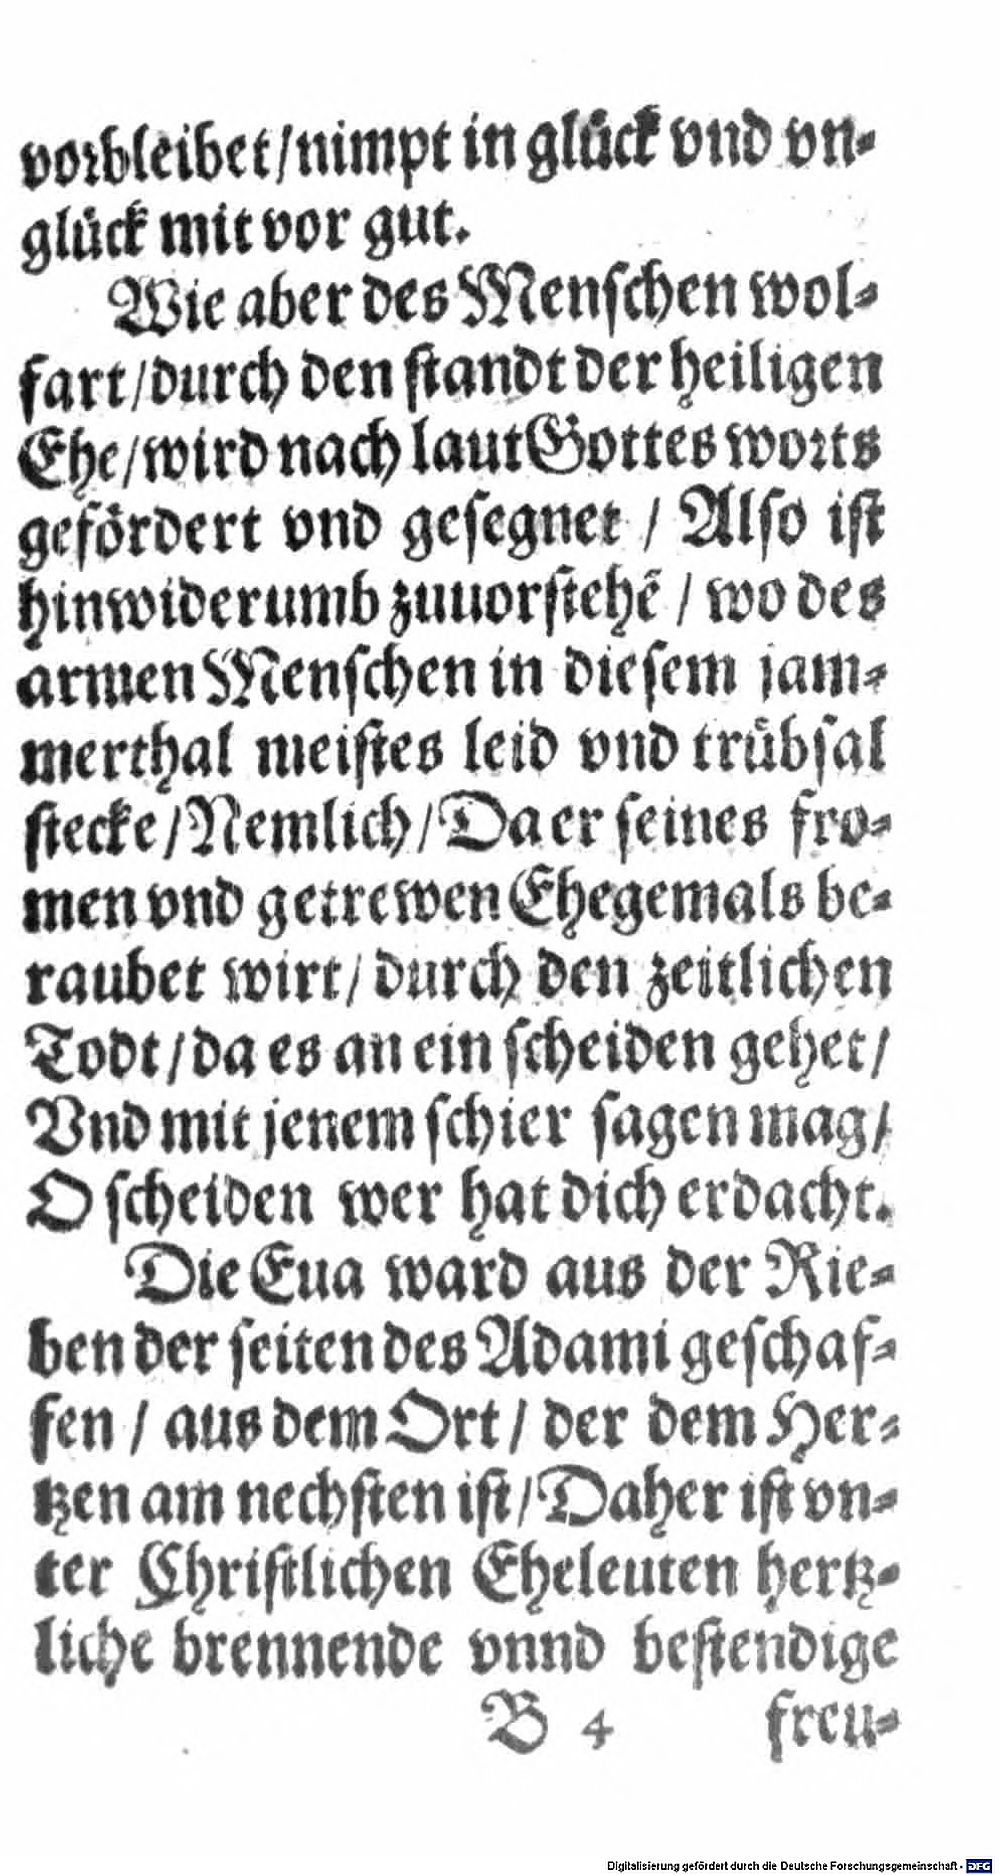 vorbleibet/nimpt in glück vnd vn⸗
glück mit vor gut.
Wie aber des Menschen wol⸗
fart/durch den standt der heiligen
Ehe/wird nach laut Gottes worts
gefördert vnd gesegnet / Also ist
hinwiderumb zuuorstehẽ / wo des
armen Menschen in diesem jam⸗
merthal meistes leid vnd trübsal
stecke/Nemlich/Da er seines fro⸗
men vnd getrewen Ehegemals be⸗
raubet wirt/durch den zeitlichen
Todt/da es an ein scheiden gehet/
Vnd mit jenem schier sagen mag/
O scheiden wer hat dich erdacht.
Die Eua ward aus der Rie⸗
ben der seiten des Adami geschaf⸗
fen / aus dem Ort / der dem Her⸗
tzen am nechsten ist/Daher ist vn⸗
ter Christlichen Eheleuten hertz⸗
liche brennende vnnd bestendige
B 4 freu⸗
Digitalisierung gefördert durch die Deutsche Forschungsgemeinschaft - DFG